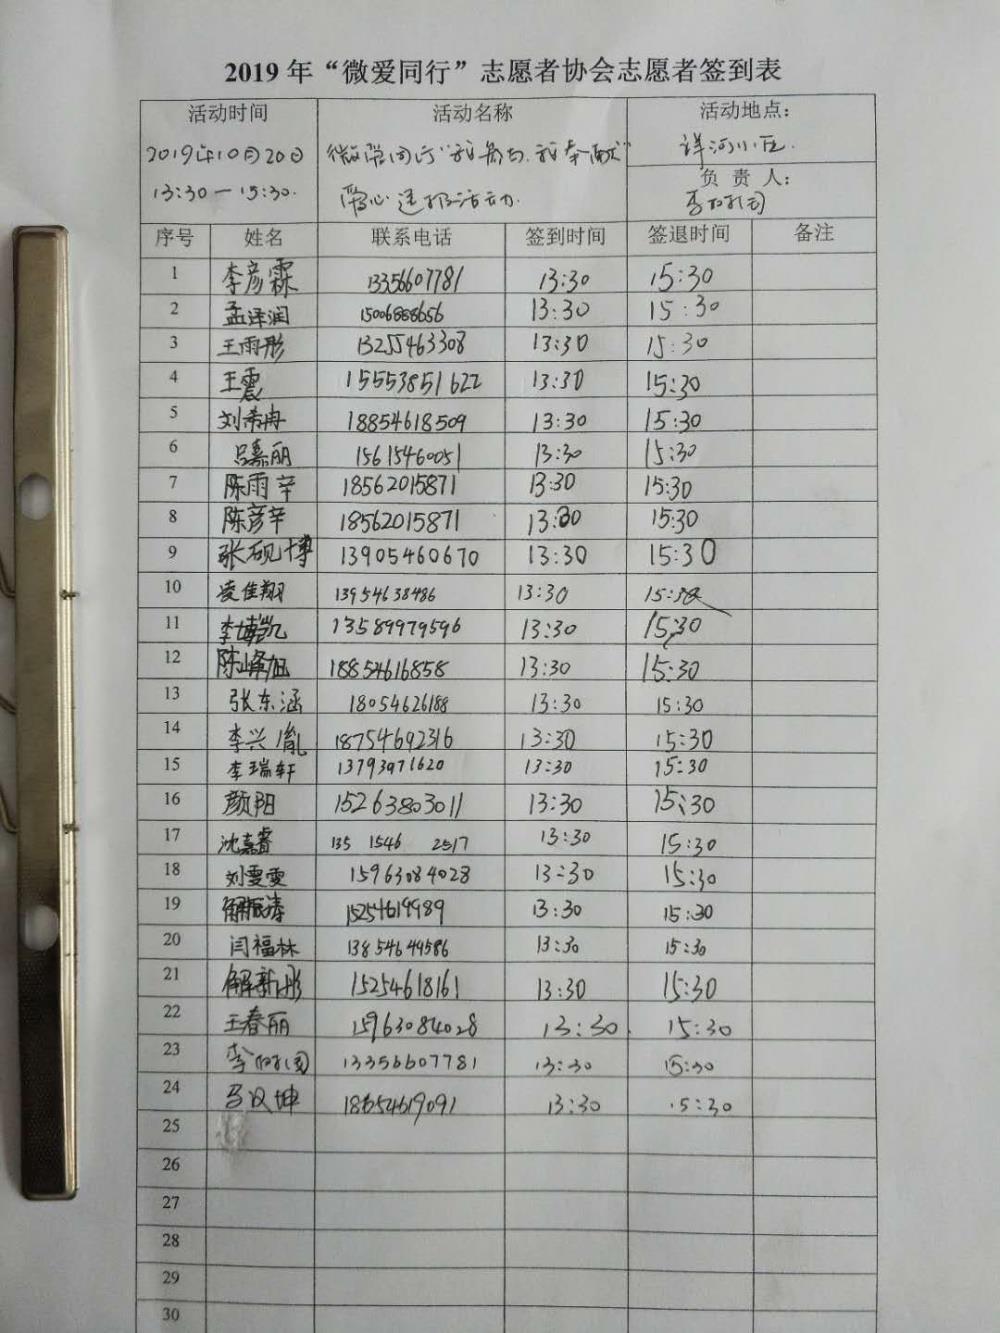 2019 年“微爱同行”志愿者协会志愿者签到表
活动时间 活动名称 活动地点：
2019年10月20日 祥河小区.
13:30－15:30. 爱心送 活动. 负 责 人：
序号 姓名 联系电话 签到时间 签退时间 备注
1 李彦霖 13356607781 13:30 15:30
2 孟泽润 15006888656 13:30 15:30
3 王雨彤 13255463308 13:30 15:30
4 王震 15553851622 13:30 15:30
5 刘希冉 18854618509 13:30 15:30
6 吕嘉丽 15615460051 13:30 15:30
7 陈雨辛 18562015871 13:30 15:30
8 陈彦辛 18562015871 13:30 15:30
9 张砚博 13905460670 13:30 15:30
10 凌佳翔 13954638486 13:30 15:30
11 李博凯 13589979596 13:30 15:30
12 陈峰旭 18854616858 13:30 15:30
13 张东涵 18054626188 13:30 15:30
14 李兴胤 18754692316 13:30 15:30
15 李瑞轩 13793971620 13:30 15:30
16 颜阳 15263803011 13:30 15:30
17 沈嘉睿 135 1546 2517 13:30 15:30
18 刘雯雯 15963084028 13:30 15:30
19 解振涛 15254619989 13:30 15:30
20 闫福林 13854649586 13:30 15:30
21 解新彤 15254618161 13:30 15:30
22 王春丽 15963084028 13:30 15:30
23 13356607781 13:30 15:30
24 13:30 15:30
25
26
27
28
29
30